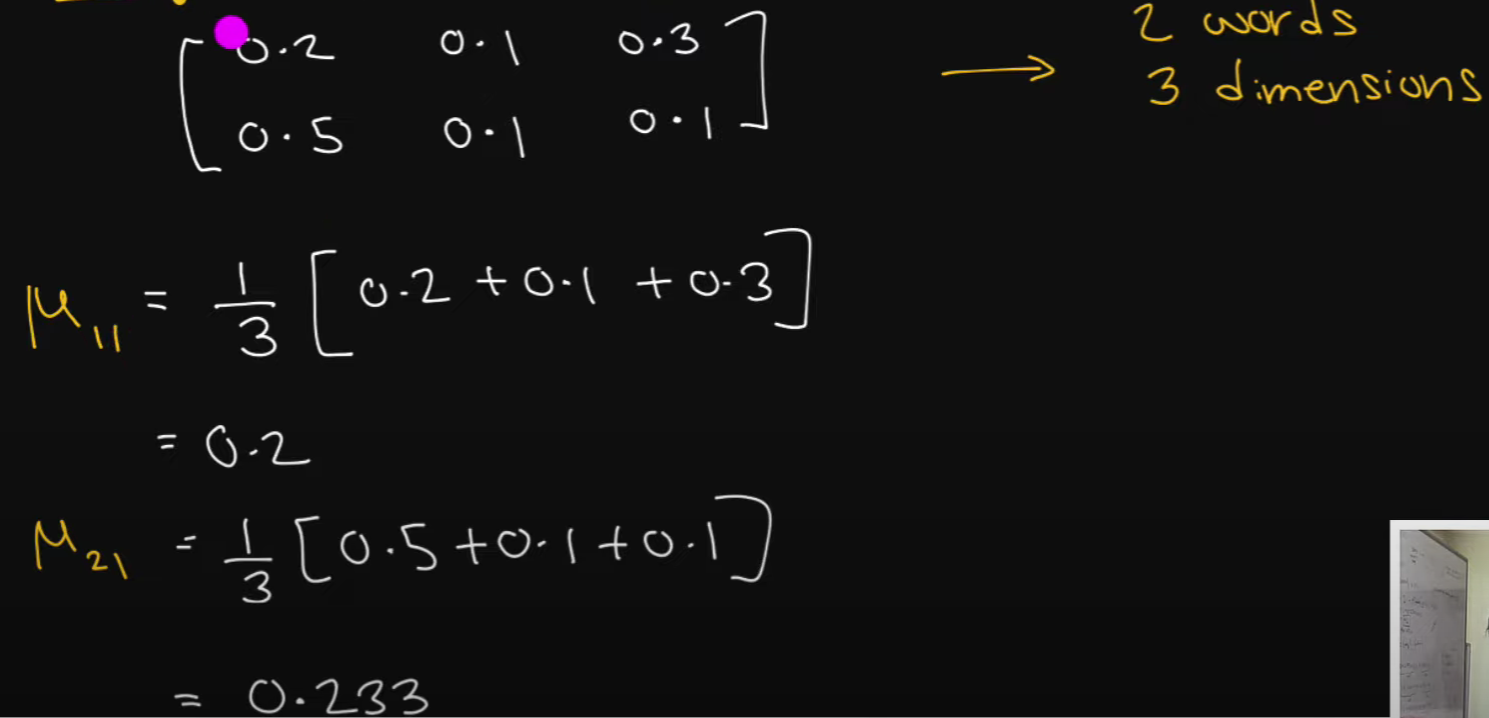 [ 0.2 0.1 0.3
0.5 0.1 0.1 ]
→ 2 words
3 dimensions
μ₁₁ = 1/3 [0.2 + 0.1 + 0.3]
= 0.2
μ₂₁ = 1/3 [0.5 + 0.1 + 0.1]
= 0.233